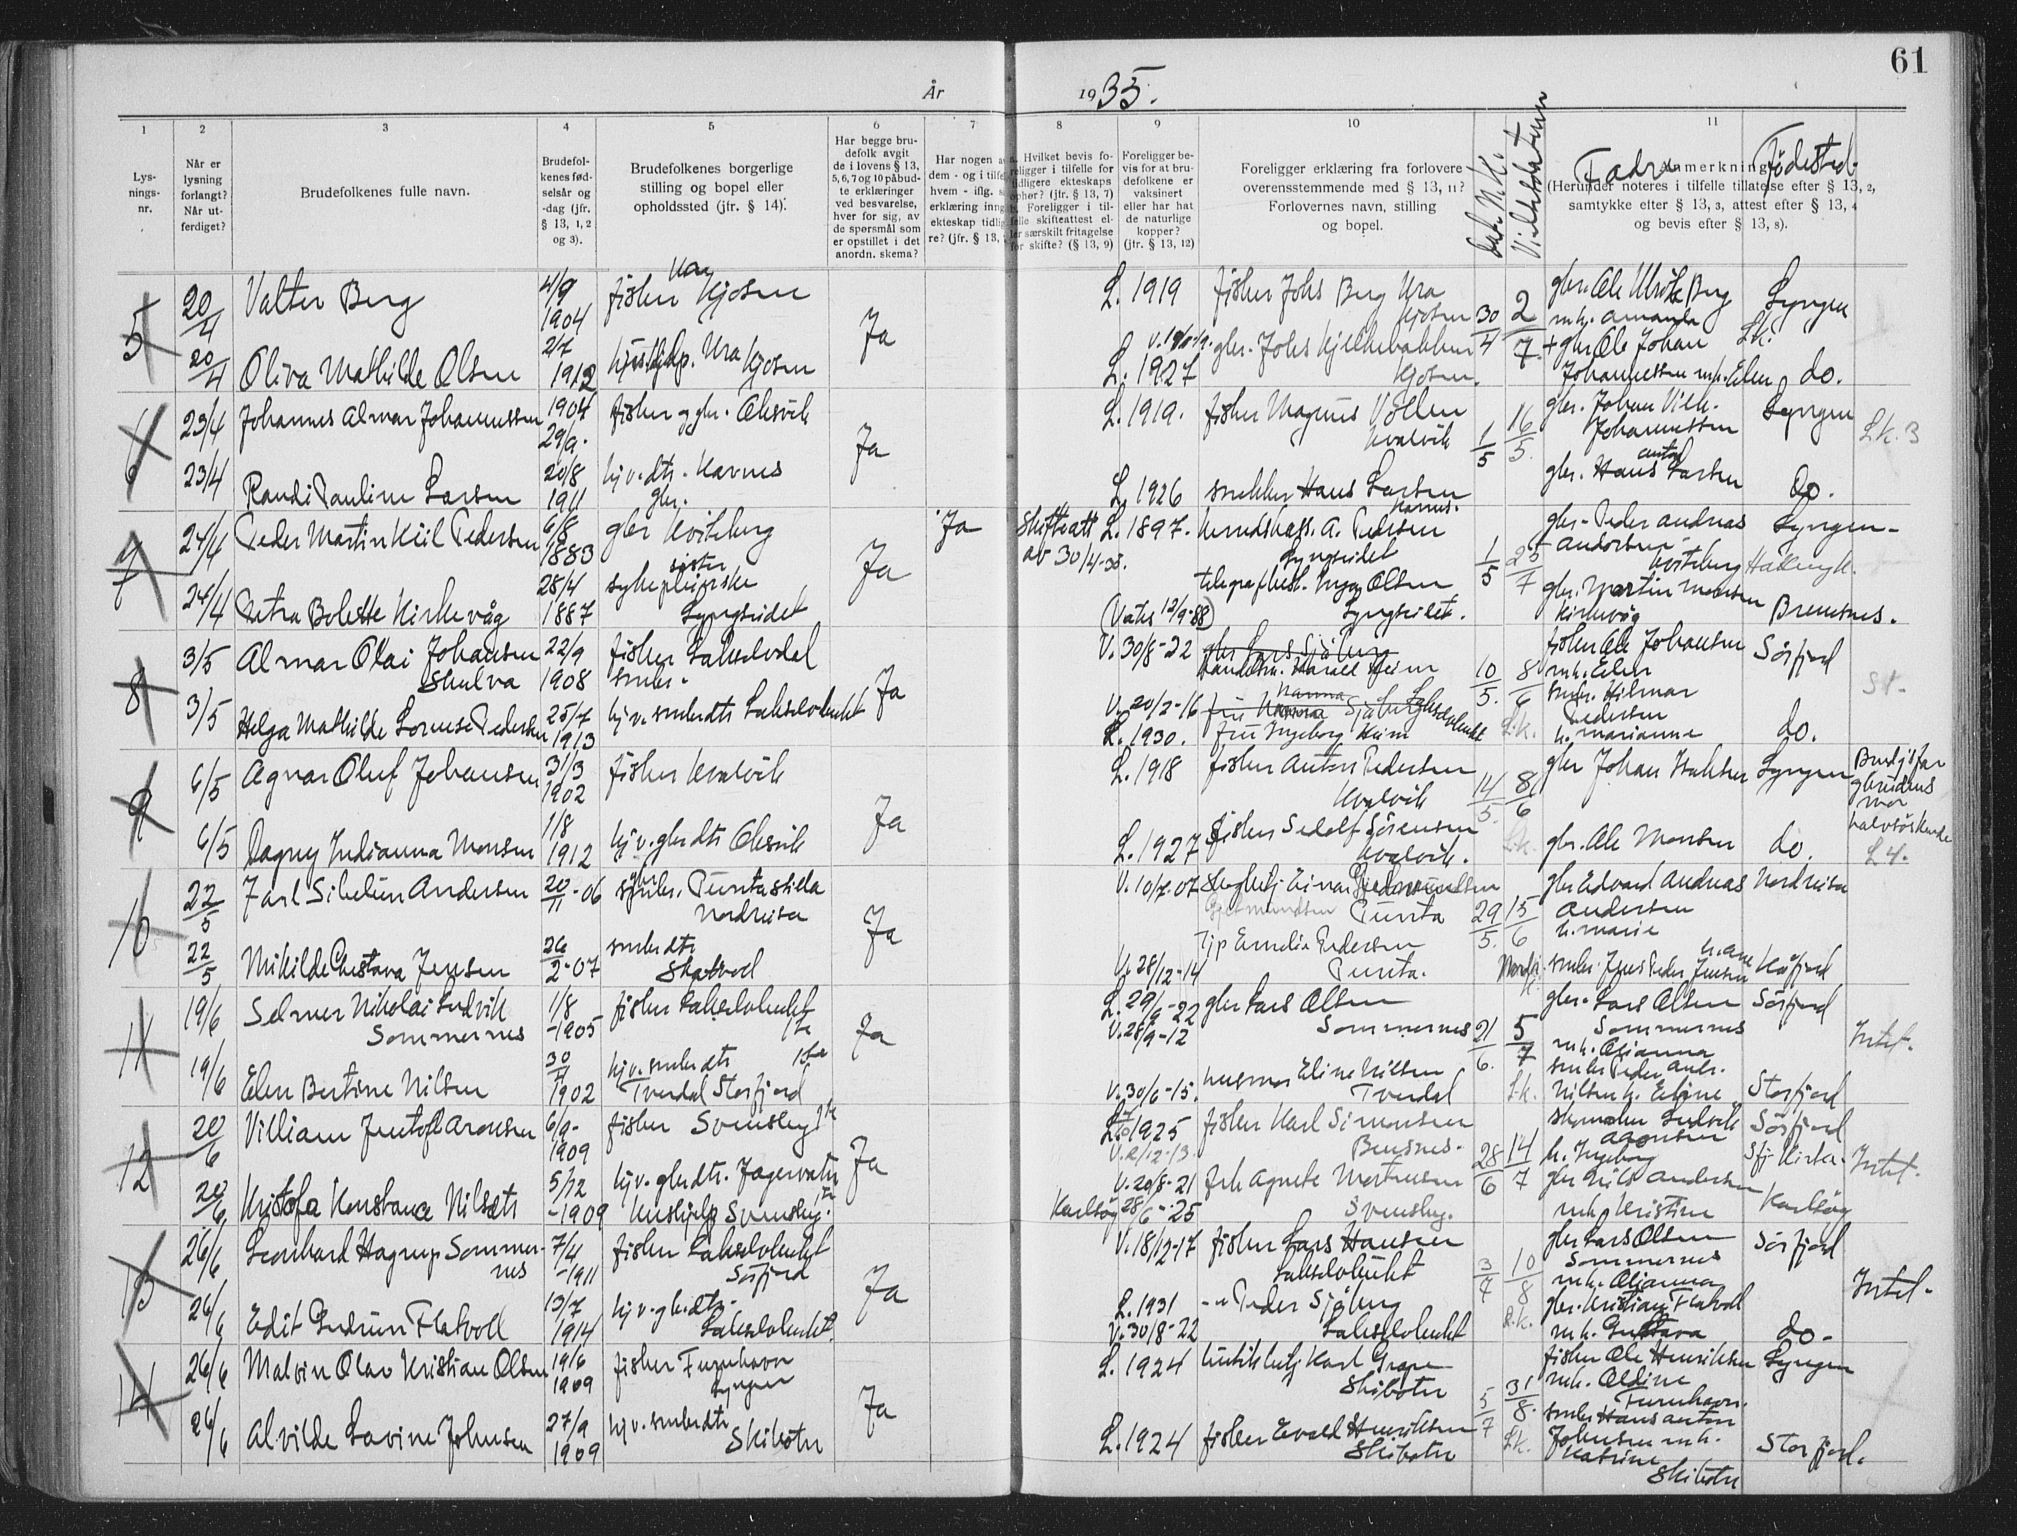 61
År 1935.
1 2 3 4 5 6 7 8 9 10 11
Lys-
nings-
nr.
Når er
lysning
forlangt?
Når ut-
ferdiget?
Brudefolkenes fulle navn.
Brudefol-
kenes fød-
selsår og
-dag (jfr.
§ 13, 1, 2
og 3).
Brudefolkenes borgerlige
stilling og bopel eller
opholdssted (jfr. § 14).
Har begge bru-
defolk avgit
de i lovens § 13,
5, 6, 7 og 10 påbud-
te erklæringer
ved besvarelse,
hver for sig, av
de spørsmål som
er opstillet i det
anordn. skema?
Har nogen a
dem - og i tilfe
hvem - iflg. s
erklæring inng
ekteskap tidlig
re? (jfr. § 13,
Hvilket bevis fo-
religger i tilfelle for
tidligere ekteskaps
ophør? (jfr. § 13, 7)
Foreligger i til-
felle skifteattest el-
ler særskilt fritagelse
for skifte? (§ 13, 9)
Foreligger be-
vis for at bru-
defolkene er
vaksinert
eller har hat
de naturlige
kopper?
(jfr. § 13, 12)
Foreligger erklæring fra forlovere
overensstemmende med § 13, 11?
Forlovernes navn, stilling
og bopel.
Vielsdatum
Fadre Anmerkning. Fødested.
(Herunder noteres i tilfelle tillatelse efter § 13, 2,
samtykke efter § 13, 3, attest efter § 13, 4
og bevis efter § 13, 8).
5 20/4 Valter Berg 4/9 1904 fisker Kjosen Ja L. 1919 fisker Johs Berg Ura Kjosen 30/4 2/7 gbr. Ole Ulrik Berg Lyngen
mh. Amanda L.k.
20/4 Oliva Mathilde Olsen 2/7 1912 Ura Kjosen L. 1927 gbr. Johs Kjelkebakken Kjosen. + gbr Ole Johan
Johannessen mh. Elen do.
6 23/4 Johannes Almar Johannessen 1904 29/9. fisker og gbr. Oksvik Ja L. 1919. fisker Magnus Vollen Kvalvik 1/5 16/5. gbr. Johan Vilh. Johannessen Lyngen L.k. 3
23/4 Randi Pauline Larsen 20/8 1911 hjv. dtr. Havnes gbr. L. 1926 snekker Hans Larsen Havnes. gbr. Hans Anton Larsen do.
7 24/4 Peder Martin Kiil Pedersen 6/8 1883 gbr Kvitberg Ja Ja Skifteatt av 30/4-35. L. 1897. herredskass. A. Pedersen Lyngseidet 1/5 25/7 gbr. Peder Andreas Andersen Kvitberg Lyngen
24/4 Petra Bolette Kirkevåg 28/4 1887 sykepleierske søster Lyngseidet (Vaks 12/9-88) telegrafbest. Inga Olsen Lyngseidet. gbr. Martin Monsen Kirkevåg Bremsnes.
8 3/5 Almar Olai Johansen Skulva 22/9 1908 fisker Lakselvdal småbr. Ja V. 30/8-22 gbr Lars Sjåberg
Handelsm. Harald Heim 10/5. 8/6 fisker Ole Johansen mh. Elen Sørfjord
3/5 Helga Mathilde Lovise Pedersen 25/7 1913 hjv. småbr dtr Lakselvbukt V. 20/2-16 L. 1930. fru Hanna Sjåberg Lakselvbukt
fru Ingeborg Heim L.k. småbr. Hilmar Pedersen h. Marianne do.
9 6/5 Agnar Oluf Johansen 31/3 1902 fisker Kvalvik Ja L. 1918 fisker Anton Pedersen Kvalvik 14/5. 8/6 gbr Johan Lyngen
6/5 Dagny Indianna Monsen 1/8 1912 hjv. gbr dtr Oksvik L. 1927 fisker Sedolf Sørensen Kvalvik. L.k. gbr. Ole Monsen do. L4.
Brudgs far
g brudens
mor
halvsøskende
10 22/5 Jarl Sibelius Andersen 20/11-06 småbr. Punta Nordreisa Ja V. 10/7-07 Einar Gjetmundsen Punta 29/5. 15/6 gbr Edvard Andreas Andersen h. Marie Nordreisa
22/5 Mikilde Gustava Jensen 26/2-07 småbr dtr Skatvold V. 28/12-14 Tjp Emelie Pedersen Punta. småbr. Jens Peder Jensen h. Ane Kåfjord
11 19/6 Selmer Nikolai Ludvik Sommernes 1/8-1905 fisker Lakselvbukt Ja L. 29/6-22 V. 28/9-12 gbr Lars Olsen Sommernes 21/6. 5/7 gbr. Lars Olsen Sommernes mh. Alianna Sørfjord Intet.
19/6 Elen Bertine Nilsen 30/4 1902 hjv. småbr dtr Tverdal Storfjord V. 30/6-15. husmor Eline Nilsen Tverdal L.k. småbr Peder Andr. Nilsen h. Eline Storfjord
12 20/6 Villiam Jentoft Aronsen 6/9-1909 fisker Svensby Ja L. 1925 V. 2/12-13. fisker Karl Simonsen Bensnes. 28/6 14/7 skomaker Ludvik Aronsen h. Ingeborg Sørfjord Intet.
20/6 Kristofa Konstance Nilsdtr 5/12-1909 hjv. gbr dtr. Jagervatn hushjelp Svensby. Karlsøy V. 20/8-21 28/6-25 frk Agnete Mortensen Svensby. gbr. Nils Andersen mh. Kristine Karlsøy
13 26/6 Leonhard Hagrup Sommernes 7/4-1911 fisker Lakselvbukt Sørfjord Ja V. 18/12-17 fisker Lars Hansen Lakselvbukt 3/7 10/8 gbr Lars Olsen Sommernes mh. Alianna Sørfjord Intet.
26/6 Edit Gudrun Flatvoll 13/7 1914 hjv. gbr dtr. Lakselvbukt L. 1931 V. 30/8-22 -"- Peder Sjåberg Lakselvbukt L.k. gbr. Kristian Flatvoll mh. Gustava do-
14 26/6 Malvin Olav Kristian Olsen 19/6 1909 fisker Furuhavn Lyngen Ja L. 1924 Karl Grape Skibotn 5/7 31/8. fisker Ole Henriksen mh. Aldine Furuhavn. Lyngen
26/6 Alvilde Lovine Johnsen 27/9 1909 hjv. småbr dtr Skibotn L. 1924 fisker Evald Henriksen Skibotn L.k. småbr Hans Anton Johnsen mh. Katrine Skibotn Storfjord.